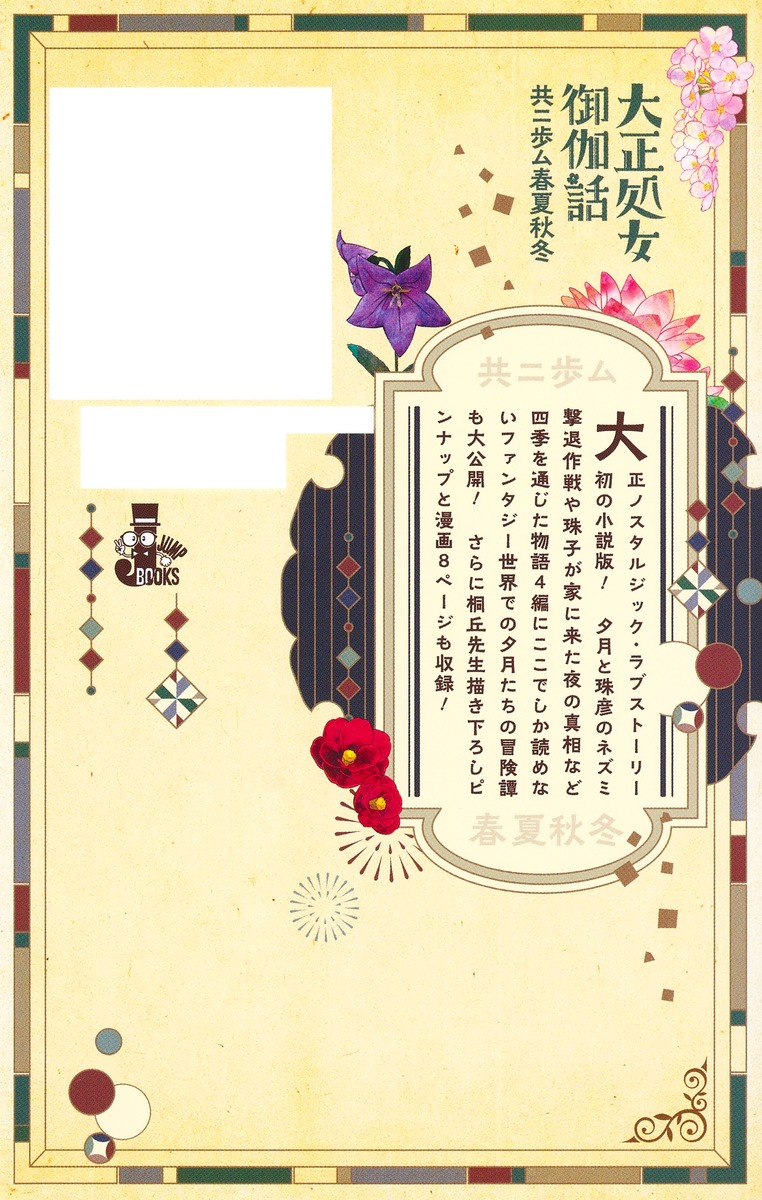 大正処女
御伽話
共ニ歩ム春夏秋冬
共ニ歩ム
大正ノスタルジック・ラブストーリー
初の小説版！　夕月と珠彦のネズミ
撃退作戦や珠子が家に来た夜の真相など
四季を通じた物語４編にここでしか読めな
いファンタジー世界での夕月たちの冒険譚
も大公開！　さらに桐丘先生描き下ろしピ
ンナップと漫画８ページも収録！
春夏秋冬
JUMP
J BOOKS